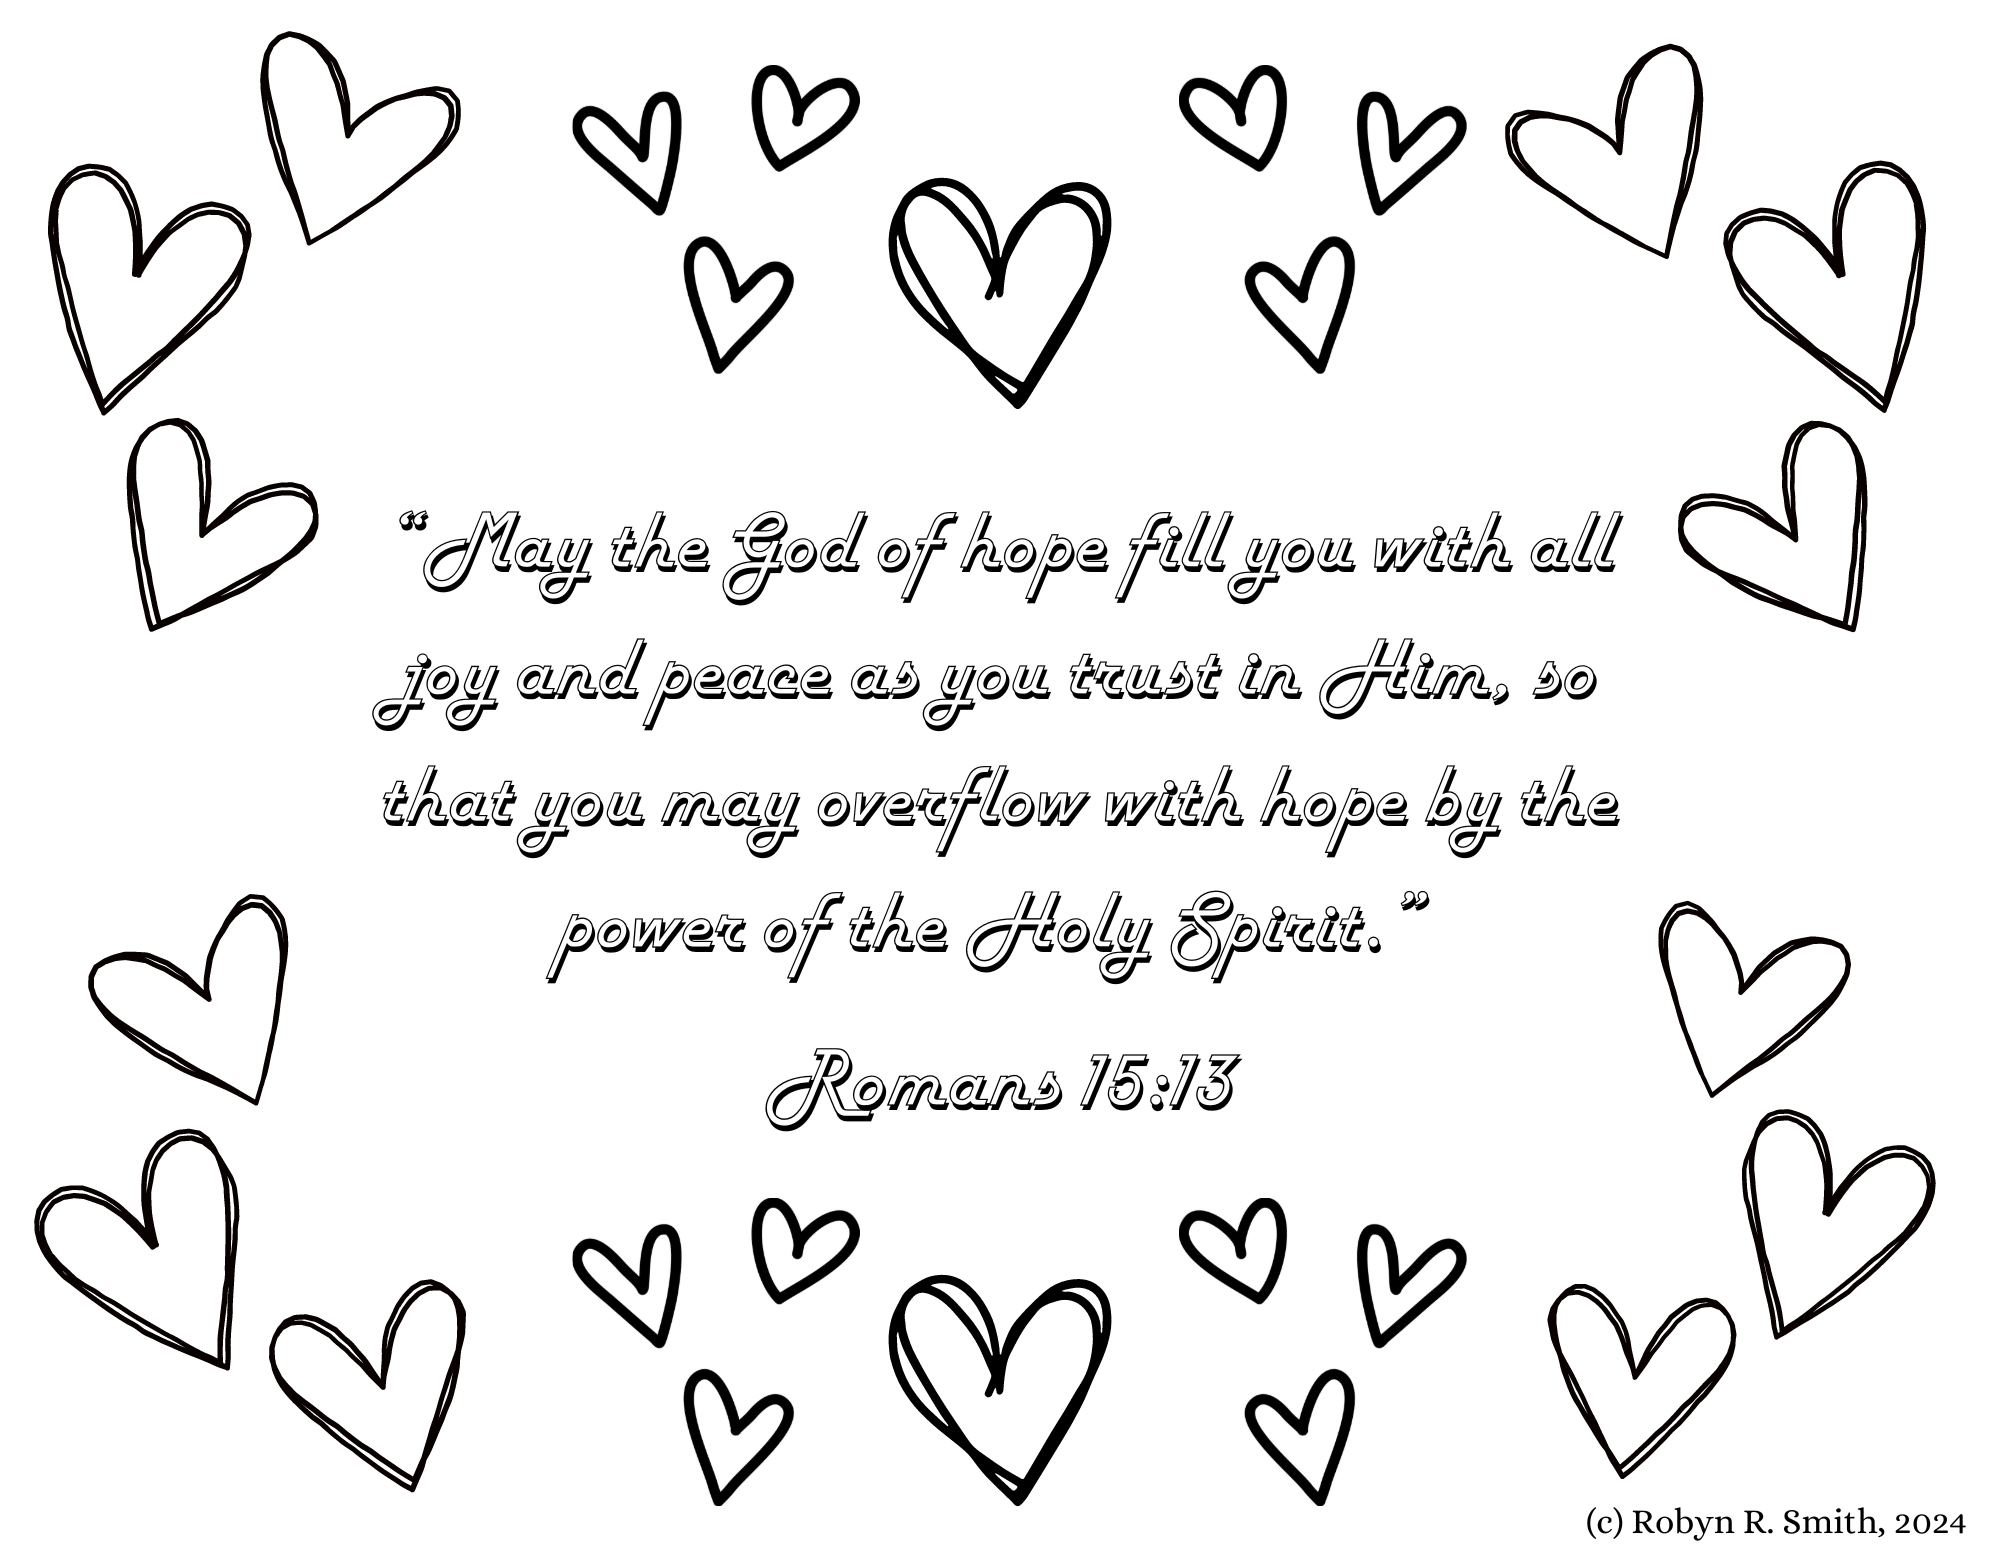 “May the God of hope fill you with all
joy and peace as you trust in Him, so
that you may overflow with hope by the
power of the Holy Spirit.”
Romans 15:13
(c) Robyn R. Smith, 2024